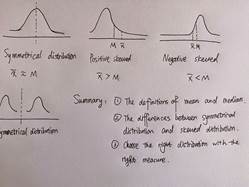 M x̄
x̄ M
Symmetrical distribution
Positive skewed
Negative skewed
x̄ ≈ M
x̄ > M
x̄ < M
Summary: ① The definitions of mean and median.
② The differences between symmetrical
distribution and skewed distribution.
③ Choose the right distribution with the
right measure.
symmetrical distribution